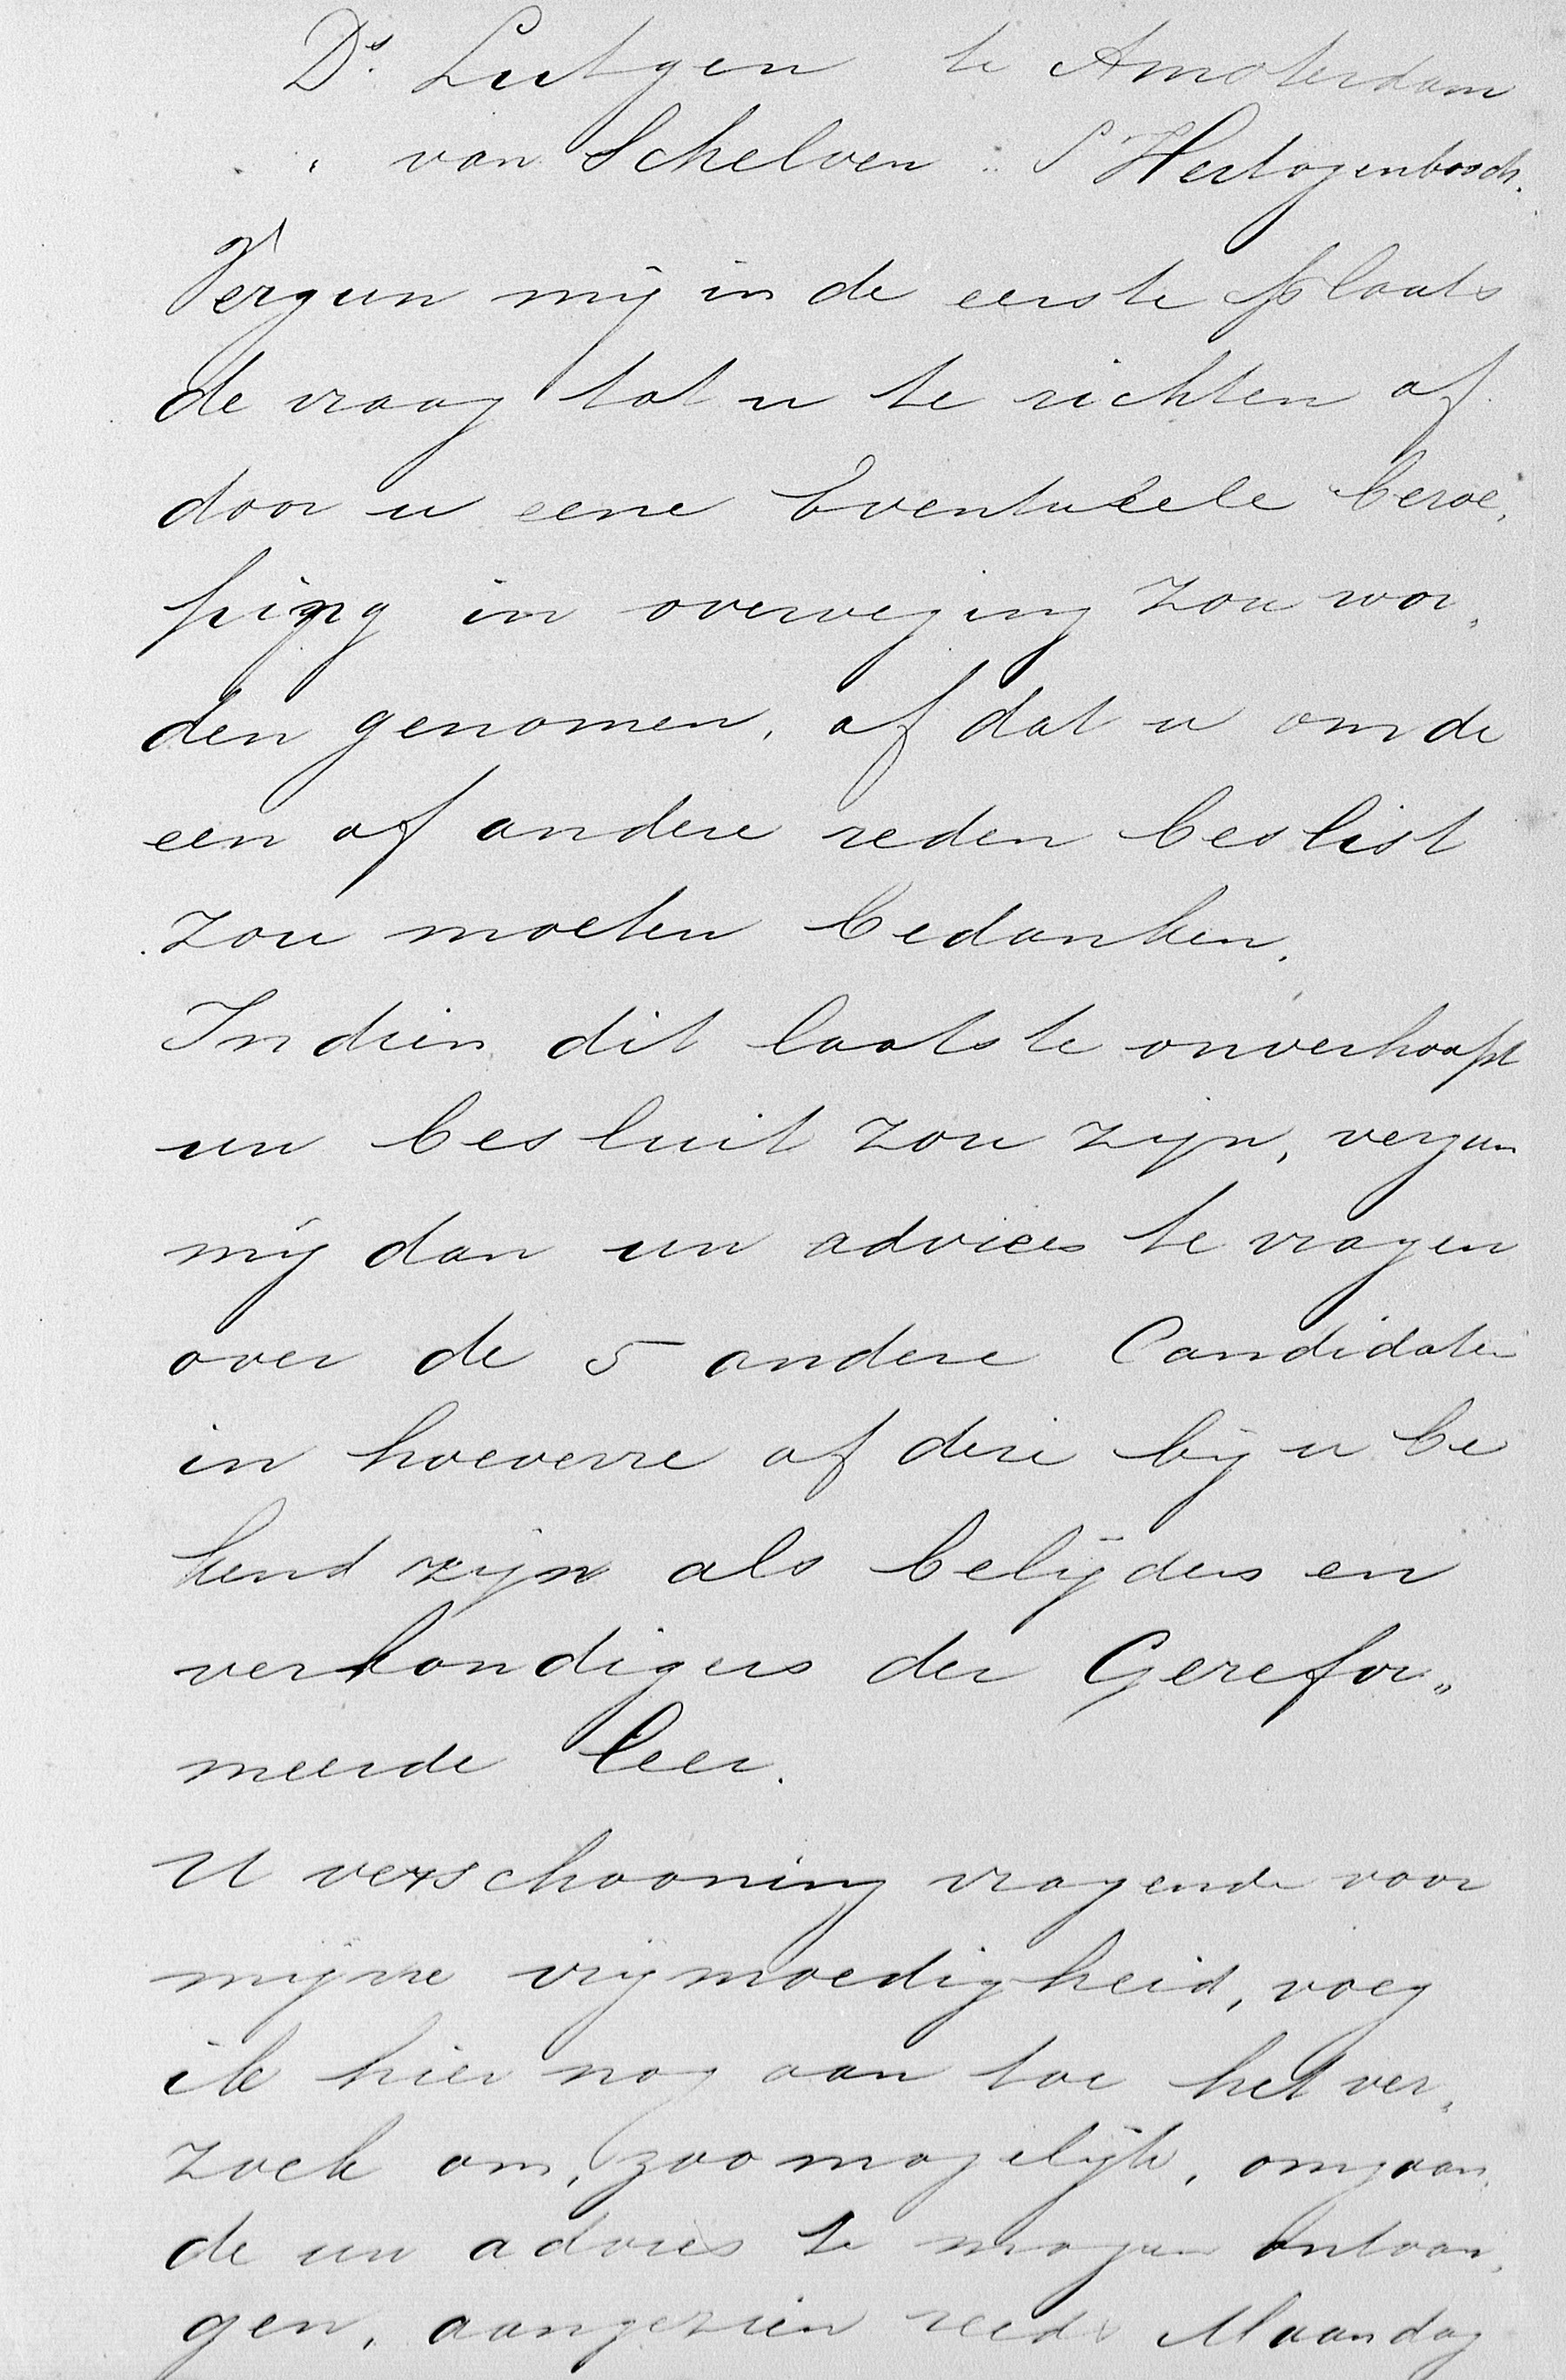 Ds. Lutgen te Amsterdam
" van Schelven " S'Hertogenbosch.
Vergun mij in de eerste plaats
de vraag tot u te richten of
door u eene Eventueele beroe,
ping in overweging zou wor,
den genomen, of dat u om de
een of andere reden beslist
zou moeten bedanken.
Indien dit laatste onverhoopt
uw besluit zou zijn, vergun
mij dan uw advies te vragen
over de 5 andere Candidaten
in hoeverre of deze bij u be
kend zijn als belijders en
verkondigers der Gerefor„
meerde leer.
U verschooning vragende voor
mijne vrijmoedigheid, voeg
ik hier nog aan toe het ver,
zoek om, zoo mogelijk, omgaan,
de uw advies te mogen ontvan,
gen, aangezien reeds Maandag